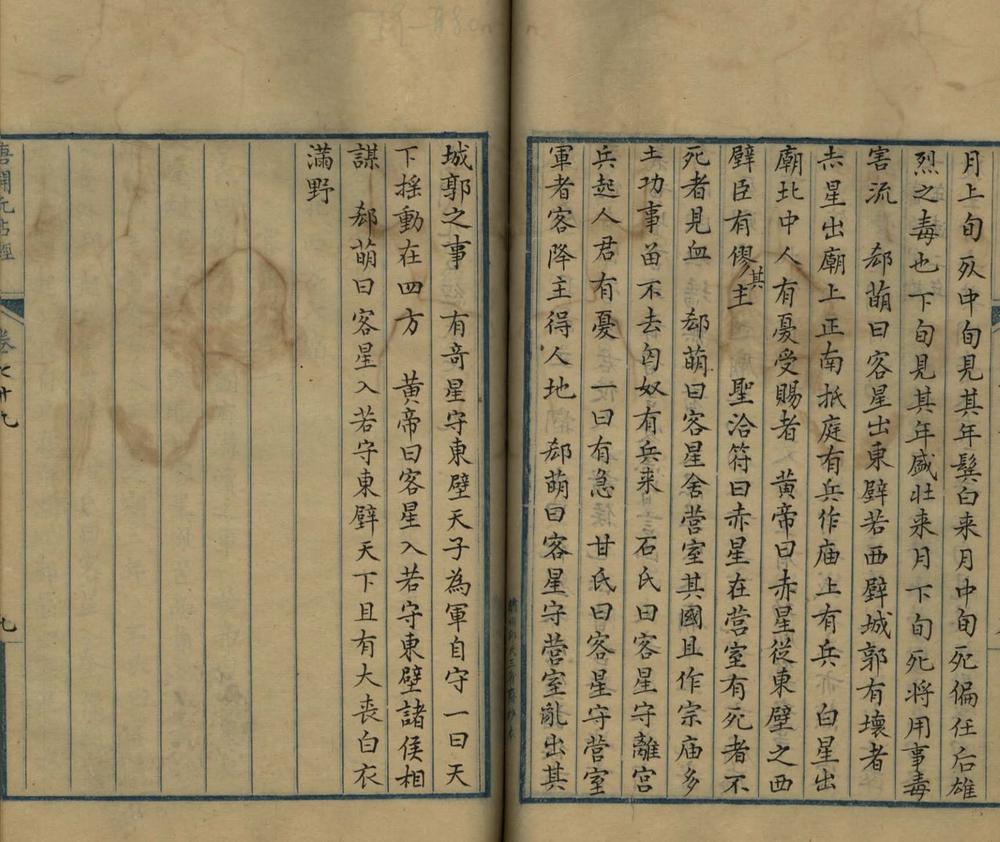 月上旬死中旬見其年鬓白来月中旬死偏任后雄
烈之毒也下旬見其年盛壮来月下旬死将用事毒
害流　郄萌曰客星出東壁若西壁城郭有壊者
赤星出廟上正南抵庭有兵作庙上有兵　白星出
廟北中人有憂受賜者　黄帝曰赤星從東壁之西
壁臣有僇其主　聖洽符曰赤星在营室有死者不
死者見血　郄萌曰客星舍营室其國且作宗庙多
土功事畄不去匈奴有兵来　石氏曰客星守離宫
兵起人君有憂　一曰有急　甘氏曰客星守营室
軍者客降主得人地　郄萌曰客星守营室亂出其
城郭之事　有竒星守東壁天子為軍自守一曰天
下揺動在四方　黄帝曰客星入若守東壁諸侯相
謀　郄萌曰客星入若守東壁天下且有大丧白衣
滿野
唐開元占經
卷七十九
九